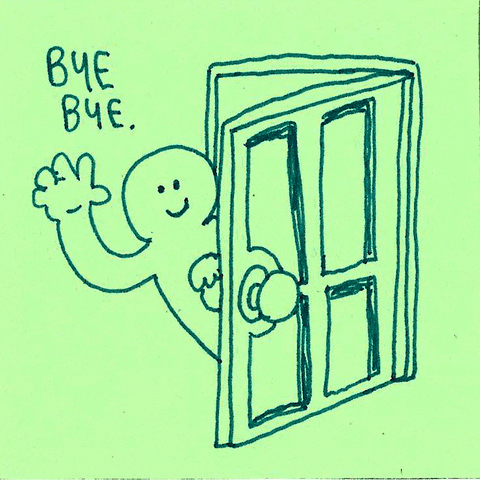 BYE
BYE.